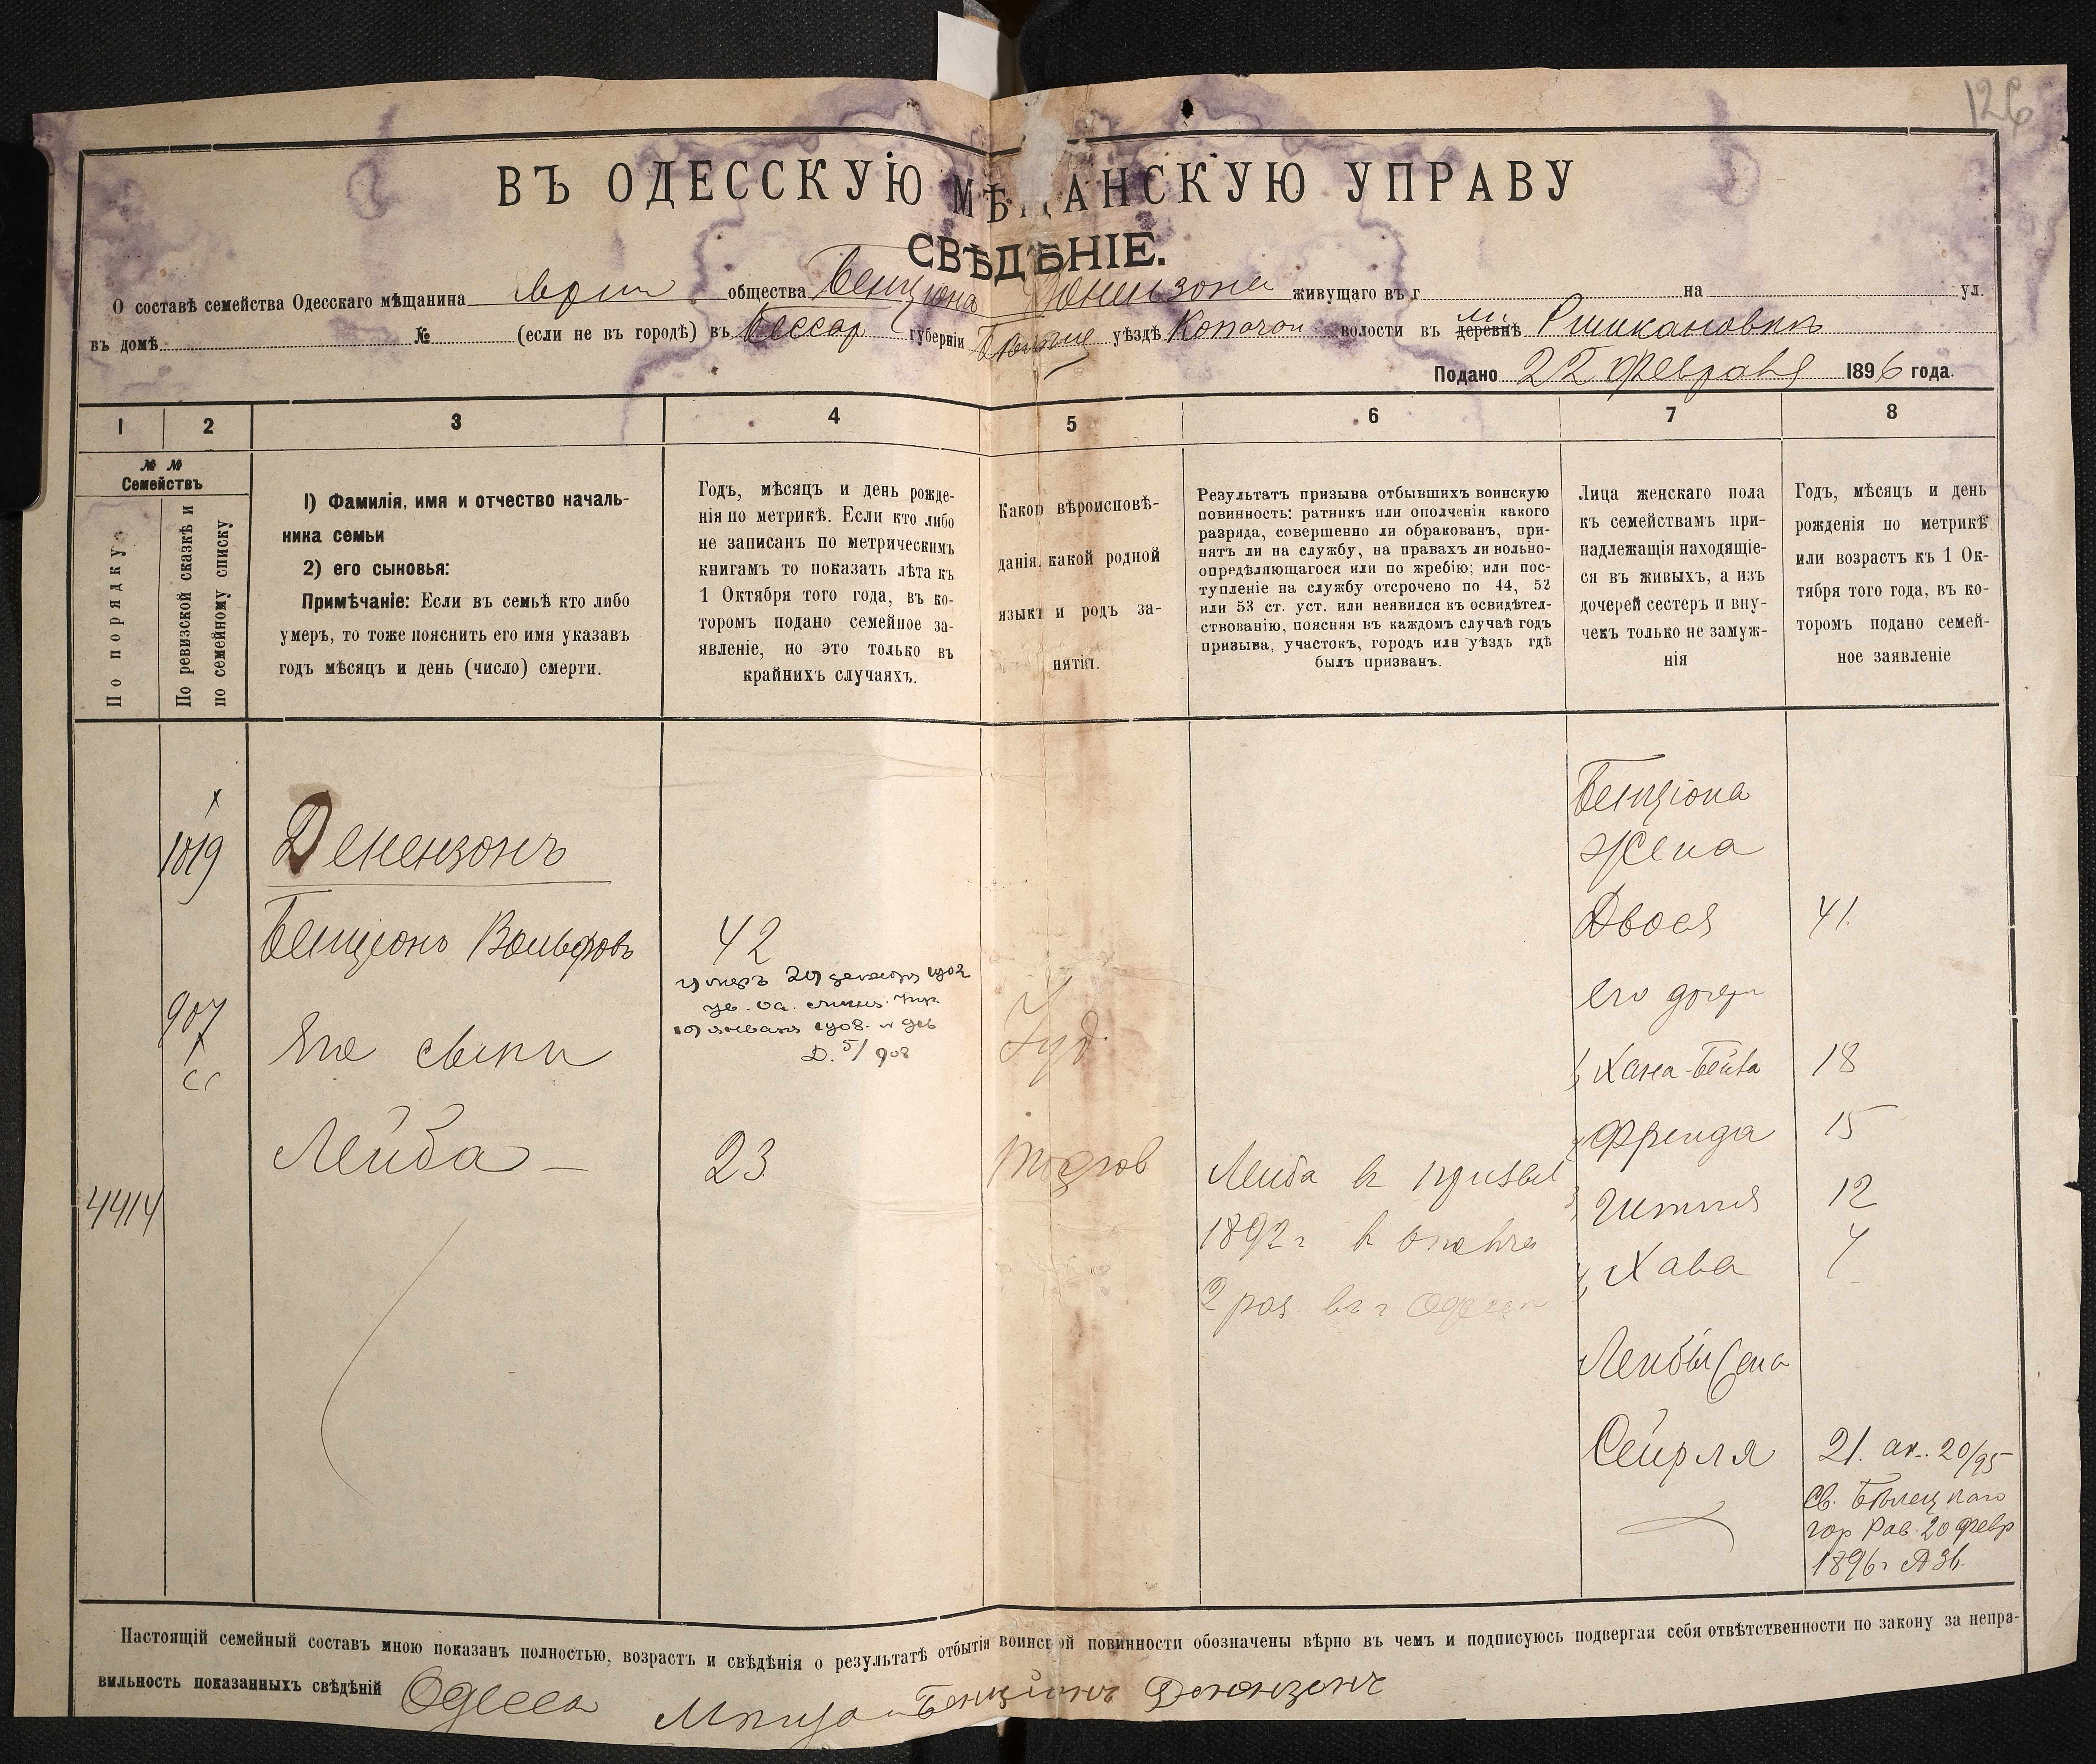 126
ВЪ ОДЕССКУЮ МѢЩАНСКУЮ УПРАВУ
СВѢДѢНІЕ.
О составѣ семейства Одесскаго мѣщанина Евреи общества Бенціона Денензона живущаго въ г на ул.
въ домѣ № (если не въ городѣ) въ Бессар губерніи уѣздѣ волости въ м. деревнѣ Ришкановкѣ
Подано 22 Февраля 1896 года.
1 2 3 4 5 6 7 8
№ №
Семействъ
По порядку
По ревизской сказкѣ и
по семейному списку
1) Фамилія, имя и отчество началь-
ника семьи
2) его сыновья:
Примѣчаніе: Если въ семьѣ кто либо
умеръ, то тоже пояснить его имя указавъ
годъ мѣсяцъ и день (число) смерти.
Годъ, мѣсяцъ и день рожде-
нія по метрикѣ. Если кто либо
не записанъ по метрическимъ
книгамъ то показать лѣта къ
1 Октября того года, въ ко-
торомъ подано семейное за-
явленіе, но это только въ
крайнихъ случаяхъ.
Какого вѣроисповѣ-
данія, какой родной
языкъ и родъ за-
нятія.
Результатъ призыва отбывшихъ воинскую
повинность: ратникъ или ополченія какого
разряда, совершенно ли обракованъ, при-
нятъ ли на службу, на правахъ ли вольно-
опредѣляющагося или по жребію; или пос-
тупленіе на службу отсрочено по 44, 52
или 53 ст. уст. или неявился къ освидѣтел-
ствованію, поясняя въ каждомъ случаѣ годъ
призыва, участокъ, городъ или уѣздъ гдѣ
былъ призванъ.
Лица женскаго пола
къ семействамъ при-
надлежащія находящіе-
ся въ живыхъ, а изъ
дочерей сестеръ и вну-
чекъ только не замуж-
нія
Годъ, мѣсяцъ и день
рожденія по метрикѣ
или возрастъ къ 1 Ок-
тября того года, въ ко-
торомъ подано семей-
ное заявленіе
Бенціона
жена
1019 Денензонъ
Двося 41
Бенціонъ Вольфовъ 42
умеръ 29 декабря 1902
19 января 1908. № 916
Д. 5/908
его дочери
907 Его сыны Іуд.
1, Хана-Бейва 18
2, Фрейда 15
Лейба — 23 торгов
Лейба въ призыв
1892 г
2 раз. въ г Одессѣ
3, Гитля 12
4414
4, Хава 7
Лейбы жена
Сейрля 21. ак. 20/95
Св. Бѣлецкаго
гор Рав. 20 февр
1896 г
Настоящій семейный составъ мною показанъ полностью, возрастъ и свѣдѣнія о результатѣ отбытія воинской повинности обозначены вѣрно въ чемъ и подписуюсь подвергая себя отвѣтственности по закону за непра-
вильность показанныхъ свѣдѣній Одесса Бенціонъ Денензонъ